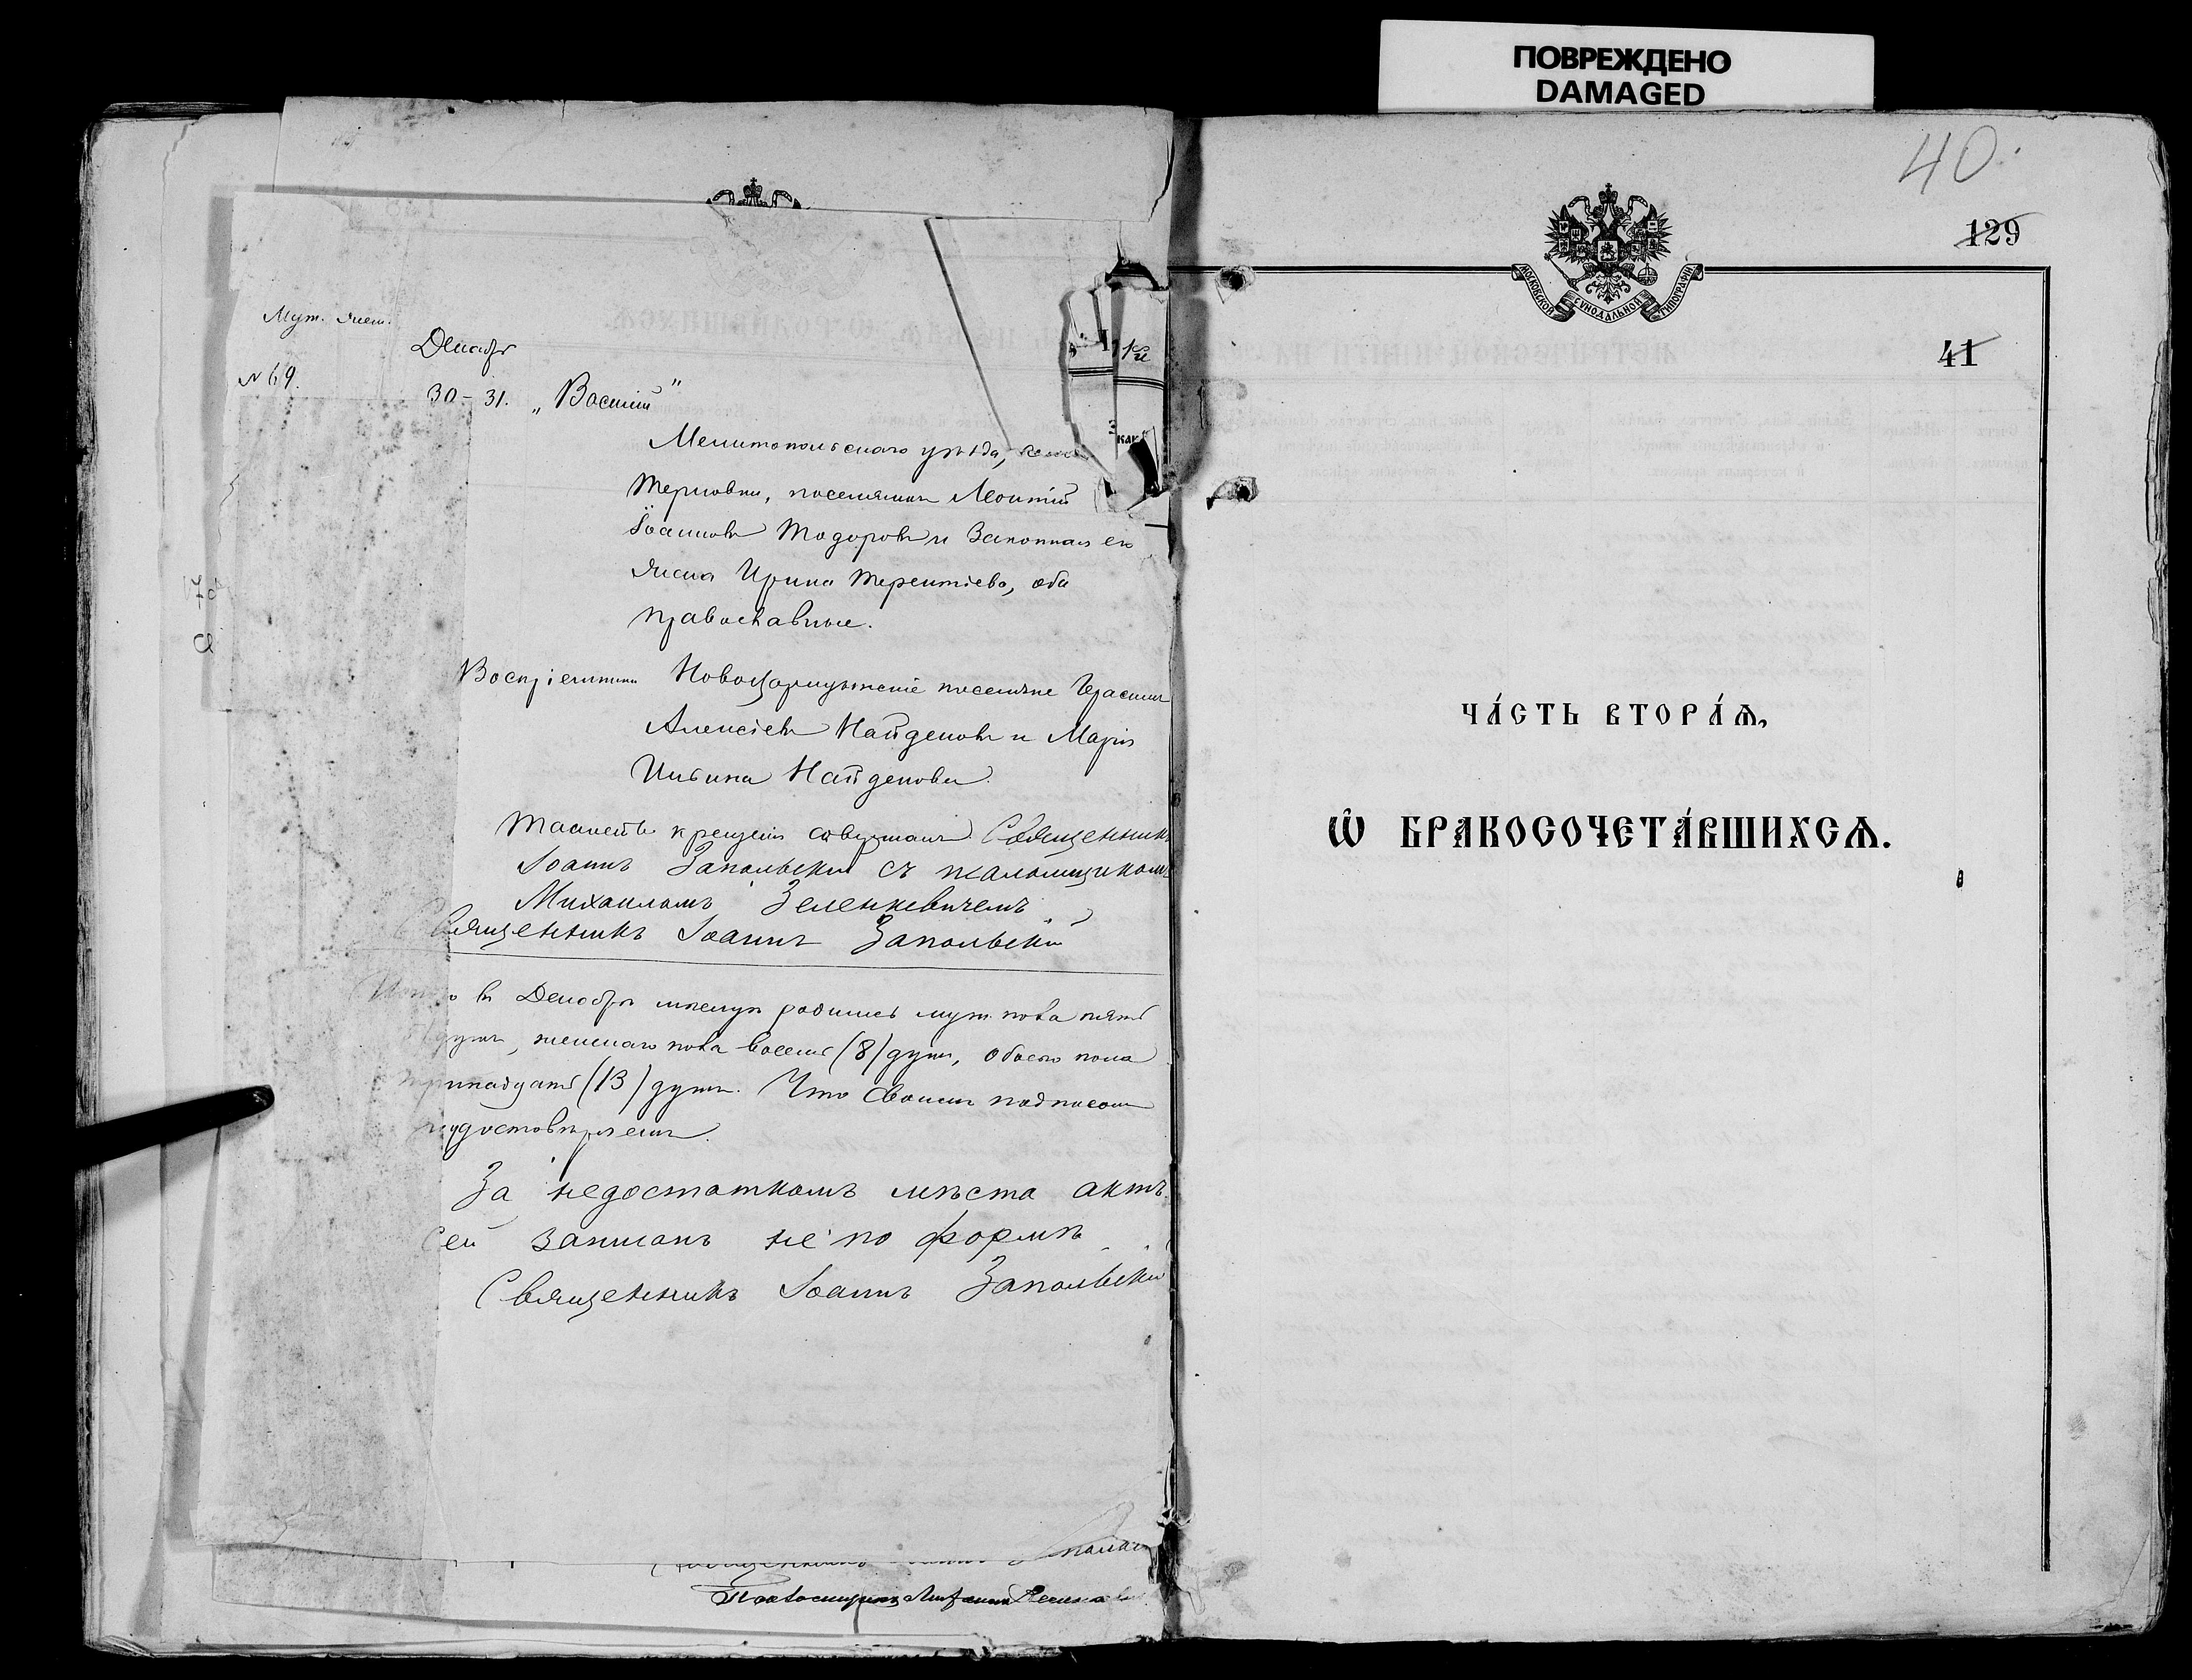 ПОВРЕЖДЕНО
DAMAGED
Муж. жен.
Декабрь
№ 69.
30 – 31. „Василій"
Мелитопольскаго уѣзда,
Терновки, поселянинъ Леонтій
Іоанновъ Тодоровъ и законная его
жена Ирина Терентіева, оба
православные.
Воспріемники Новоцарицынскіе поселяне Герасимъ
Алексіевъ Найденовъ и Марія
Ильина Найденова.
Таинство крещенія совершалъ Священникъ
Іоаннъ Запольскій съ псаломщикомъ
Михаиломъ Зеленкевичемъ
Священникъ Іоаннъ Запольскій
Итого въ Декабрѣ мѣсяцѣ родилось муж. пола пять
душъ, женскаго пола восемь (8) душъ, обоего пола
тринадцать (13) душъ. Что своимъ подписомъ
удостовѣряемъ.
За недостаткомъ мѣста актъ
сей записанъ не по формѣ
Священникъ Іоаннъ Запольскій
Псаломщикъ Михаилъ
40.
129
МОСКОВСКОЙ СѴНОДАЛЬНОЙ ТИПОГРАФІИ
41
ЧА́СТЬ ВТОРА́Ѧ,
Ѽ БРАКОСОЧЕТА́ВШИХСѦ.